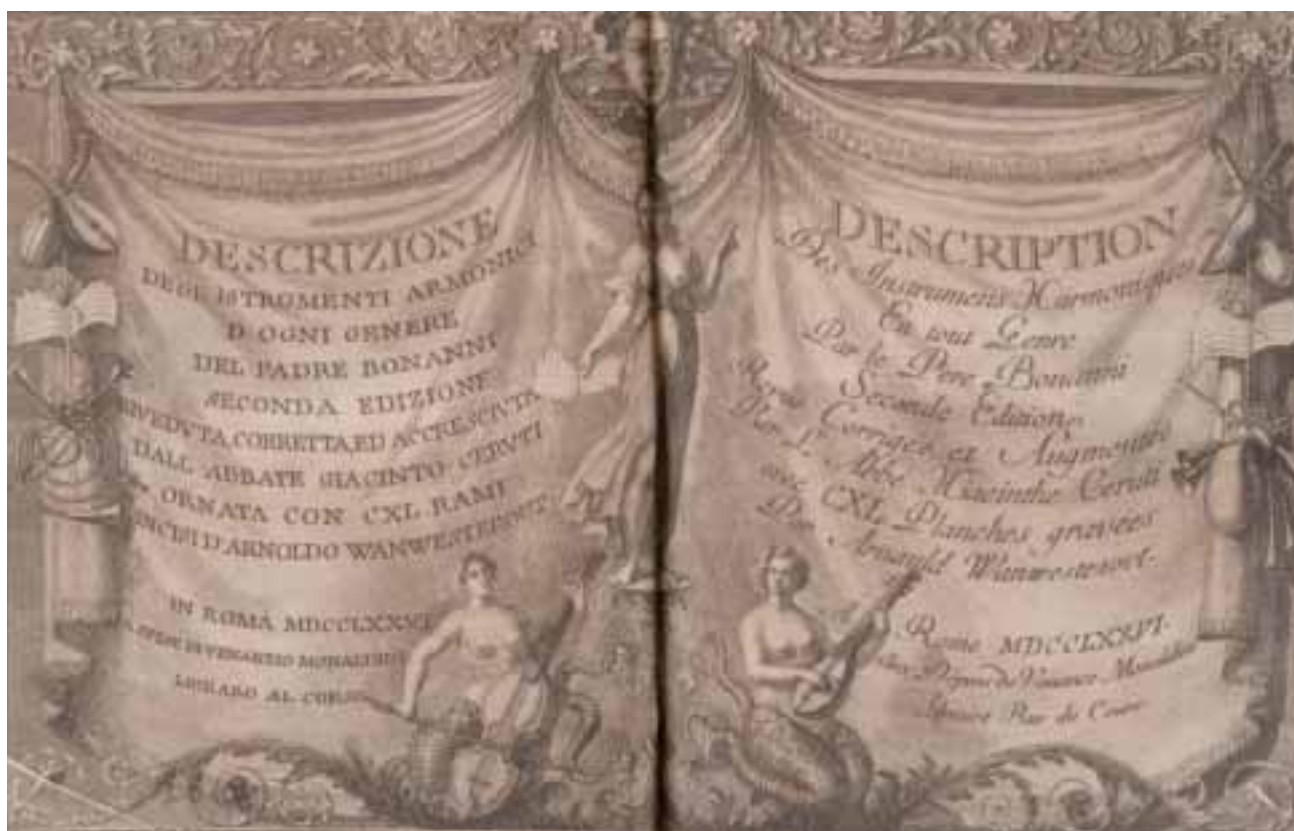 DESCRIZIONE
DEGL ISTROMENTI ARMONICI
D OGNI GENERE
DEL PADRE BONANNI
SECONDA EDIZIONE
RIVEDUTA, CORRETTA, ED ACCRESCIUTA
DALL ABBATE GIACINTO CERUTI
ORNATA CON CXL RAMI
INCISI D'ARNOLDO WANWESTERHOUT
IN ROMA MDCCLXXVI
A SPESE DI VENANZIO MONALDINI
LIBRARO AL CORSO
DESCRIPTION
Des Instrumens Harmoniques
En tout Genre
Par le Pere Bonanni
Seconde Edition
Corrigée et Augmentée
Par L' Abbé Hiacinthe Ceruti
avec CXL Planches gravées
Par Arnauld Wanwesterout
Rome MDCCLXXVI
aux Depens de Venance Monaldini
Libraire Rue du Cours